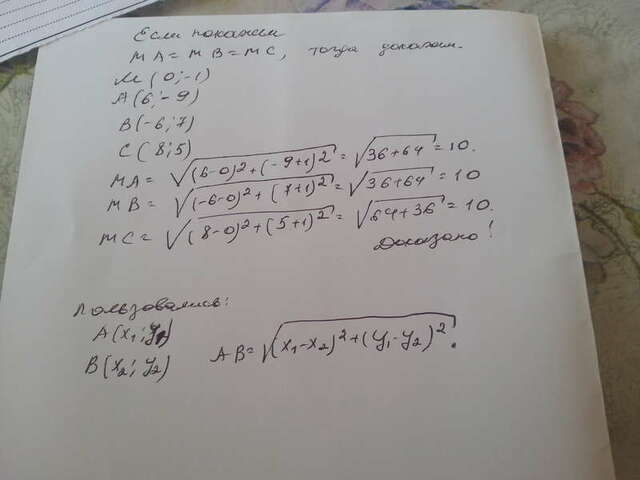 Если покажем
MA = MB = MC, тогда докажем.
M(0;-1)
A(6;-9)
B(-6;7)
C(8;5)
MA = √(6-0)²+(-9+1)² = √36+64 = 10.
MB = √(-6-0)²+(7+1)² = √36+64 = 10
MC = √(8-0)²+(5+1)² = √64+36 = 10.
Доказано!
Пользовались:
A(x₁;y₁)
B(x₂;y₂) AB = √(x₁-x₂)²+(y₁-y₂)².